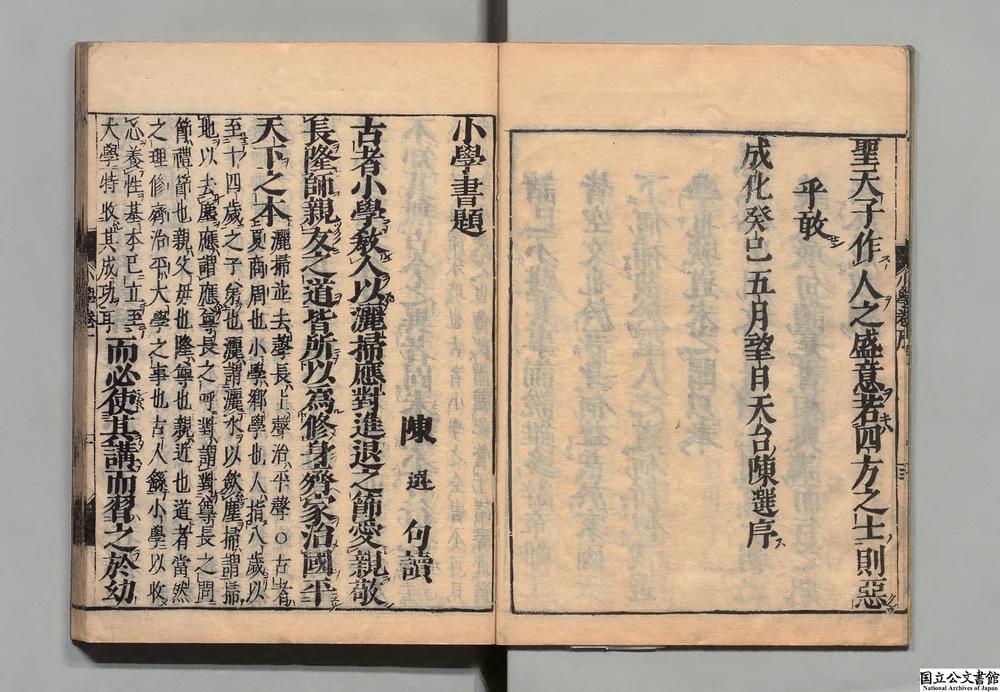 聖天子作人之盛意若四方之士則惡
乎敢
成化癸巳五月望日天台陳選序
小學書題
陳選句讀
古者小學教人以灑掃應對進退之節愛親敬
長隆師親友之道皆所以爲修身齊家治國平
天下之本
灑掃並去聲長上聲治平聲○古者
夏商周也小學鄉學也人指八歲以
至十四歲之子弟也灑謂灑水以歛塵掃謂掃
地以去塵應謂應尊長之呼對謂對尊長之問
節禮節也親父母也隆尊也親近也道者當然
之理修齊治平大學之事也古人繇小學以收
心養性基本已立至
大學特收其成功耳
而必使其講而習之於幼
小學卷一
國立公文書館
National Archives of Japan